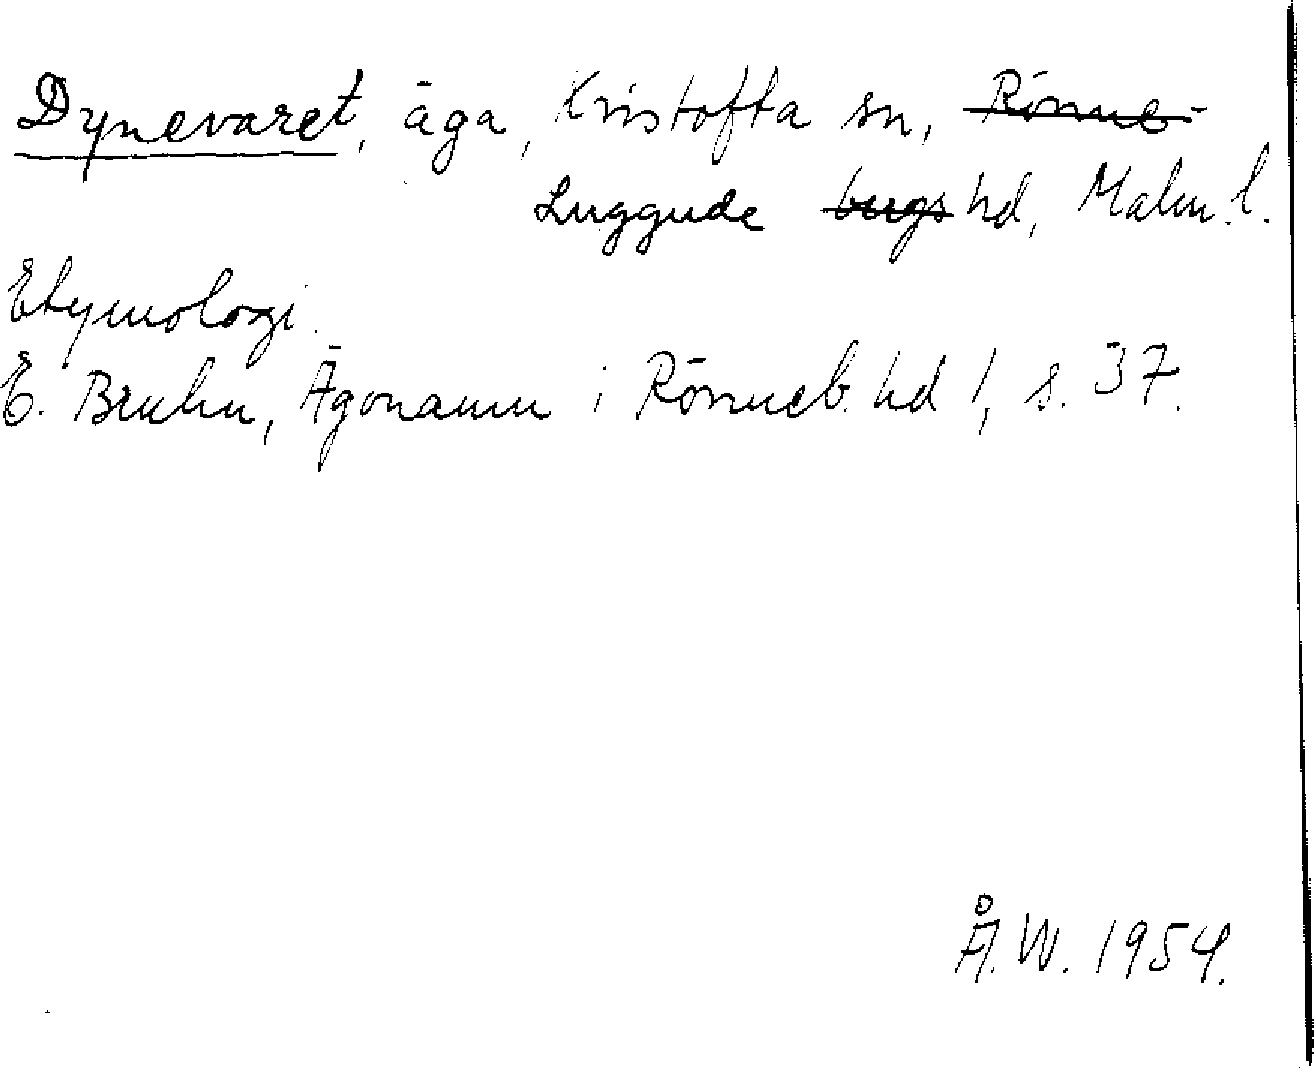 Dynevaret, äga, Kristofta sn, Rönne-
Luggude bergs hd, Malm. l.
Etymologi.
E. Bruhn, Ägonamn i Rönneb. hd 1, s. 37.
Å. W. 1954.